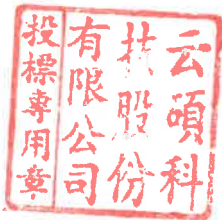 云碩科
技股份
有限公司
投標專用章